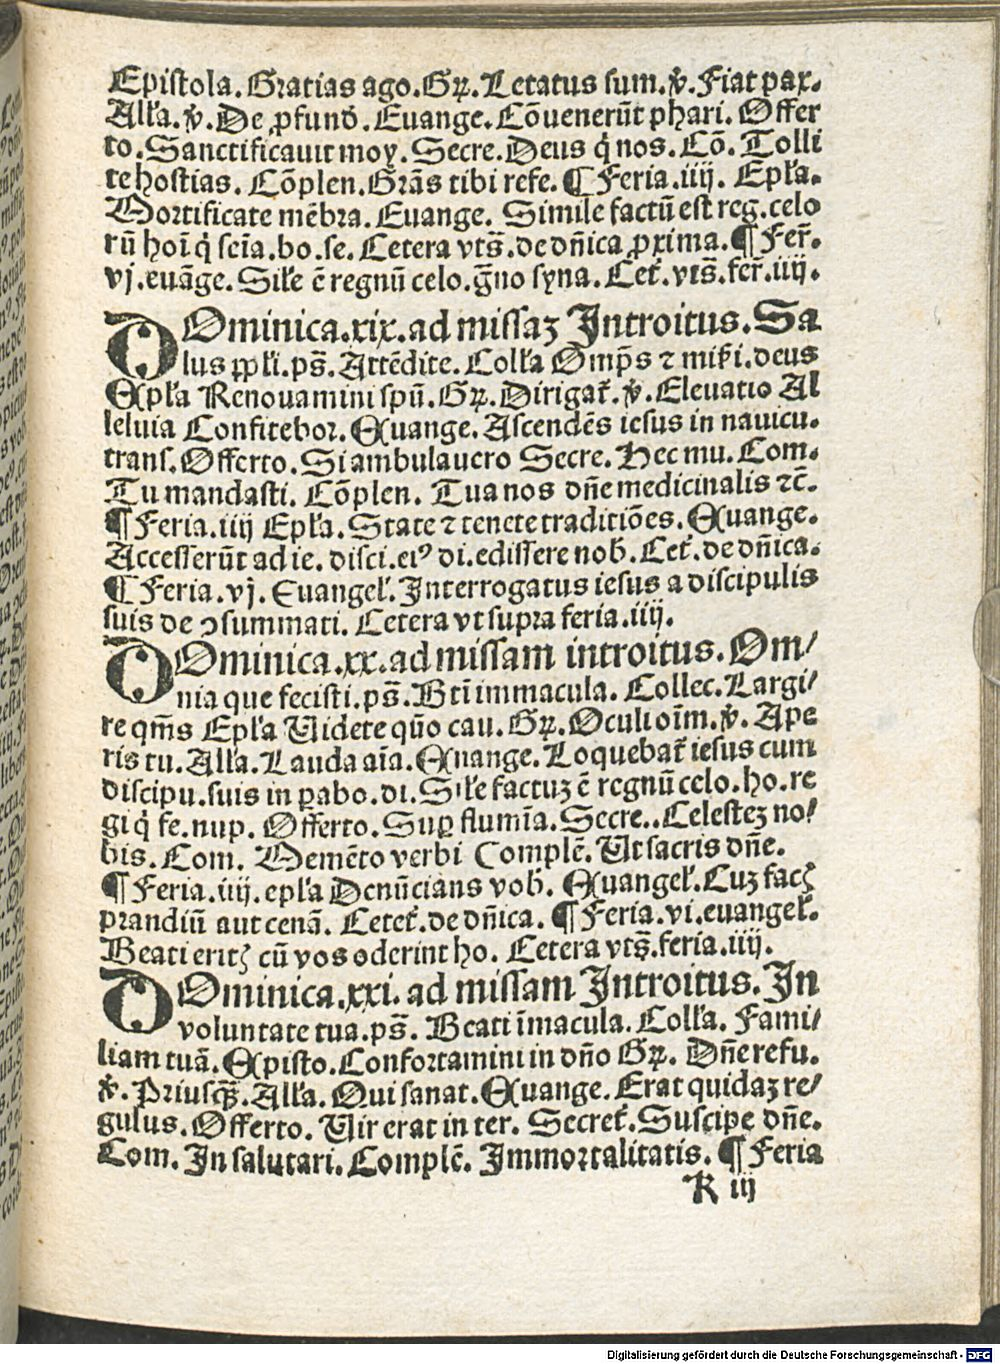 Epistola. Gratias ago. Gꝝ. Letatus sum. v̾. Fiat pax.
Allʼa. v̾. De ꝓfund̾. Euange. Cōuenerūt phari. Offer
to. Sanctificauit moy. Secre. Deus q̇ nos. Cō. Tolli
te hostias. Cōplen. Grās tibi refe. ¶ Feria. iiij. Eplʼa.
Mortificate mēbra. Euange. Simile factū est reg. celo
rū hoī q̇ semīa. bo. se. Cetera vts̄. de dn̄ica ꝓxima. ¶ Fer̄.
vj. euāge. Silʼe ē regnū celo. g̅no syna. Cet̾. vts̄. fer̄. iiij.
DOminica. xix. ad missaꝫ Introitus. Sa
lus ppl̓i. ps̄. Attēdite. Collʼa Omp̄s ⁊ mik̓i. deus
Epl̓a Renouamini spū. Gꝝ. Dirigat̾. v̾. Eleuatio Al
leluia Confitebor. Euange. Ascendēs iesus in nauicu.
trans. Offerto. Si ambulauero Secre. Hec mu. Com.
Tu mandasti. Cōplen. Tua nos dn̄e medicinalis ⁊c̄.
¶ Feria. iiij Epl̓a. State ⁊ tenete traditiōes. Euange.
Accesserūt ad ie. disci. eiꝰ di. edissere nob̾. Cet̾. de dn̄ica.
¶ Feria. vj. Euangel̓. Interrogatus iesus a discipulis
suis de ↄsummati. Cetera vt supra feria. iiij.
DOminica. xx. ad missam introitus. Om/
nia que fecisti. ps̄. Btī immacula. Collec. Largi/
re qm̄s Epl̓a Videte quō cau. Gꝝ. Oculi oīm. v̾. Ape
ris tu. All̓a. Lauda aīa. Euange. Loquebat̾ iesus cum
discipu. suis in ꝑabo. di. Sil̓e factuꝫ ē regnū celo. ho. re
gi q̇ fe. nup. Offerto. Suꝑ flumīa. Secre.. Celesteꝫ no/
bis. Com. Memēto verbi Complē. Vt sacris dn̄e.
¶ Feria. iiij. epl̓a Denūcians vob̾. Euangel̓. Cuꝫ facꝭ
prandiū aut cenā. Cetet̾. de dn̄ica. ¶ Feria. vi. euangel̓.
Beati eritꝭ cū vos oderint ho. Cetera vts̄. feria. iiij.
DOminica. xxi. ad missam Introitus. In
voluntate tua. ps̄. Beati īmacula. Coll̓a. Fami/
liam tuā. Episto. Confortamini in dn̄o Gꝝ. Dn̄e refu.
v̾. Priusq̄ꝫ. All̓a. Qui sanat. Euange. Erat quidaꝫ re/
gulus. Offerto. Vir erat in ter. Secret̾. Suscipe dn̄e.
Com. In salutari. Complē. Immortalitatis. ¶ Feria
K iij
Digitalisierung gefördert durch die Deutsche Forschungsgemeinschaft - DFG